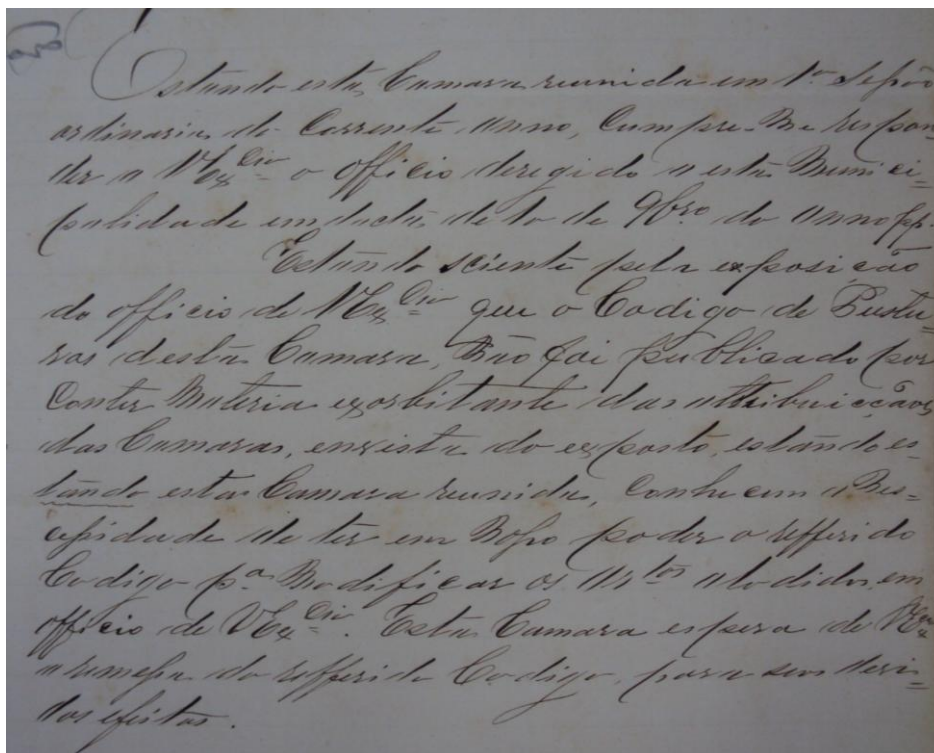 Estando esta Camara reunida em 1ª Sessão
ordinaria do Corrente anno, Cumpre-me respon=
der a V. Ex.cia o officio deregido a esta Munici=
palidade em data de 10 de 9bro do anno pp.
Estando sciente pela exposição
do officio de V. Ex.cia que o Codigo de Pustu=
ras desta Camara, não foi publicado por
Conter materia exorbitante das attribuicções
das Camaras, envista do exposto, estando es=
tando esta Camara reunida, Conhecem a ne=
cessidade de ter em nosso poder o refferido
Codigo p.a modificar os artos aludidos em
officio de V. Ex.cia. Esta Camara espera de V. Ex.cia
a remessa do refferido Codigo, para seus devi=
dos efeitos.